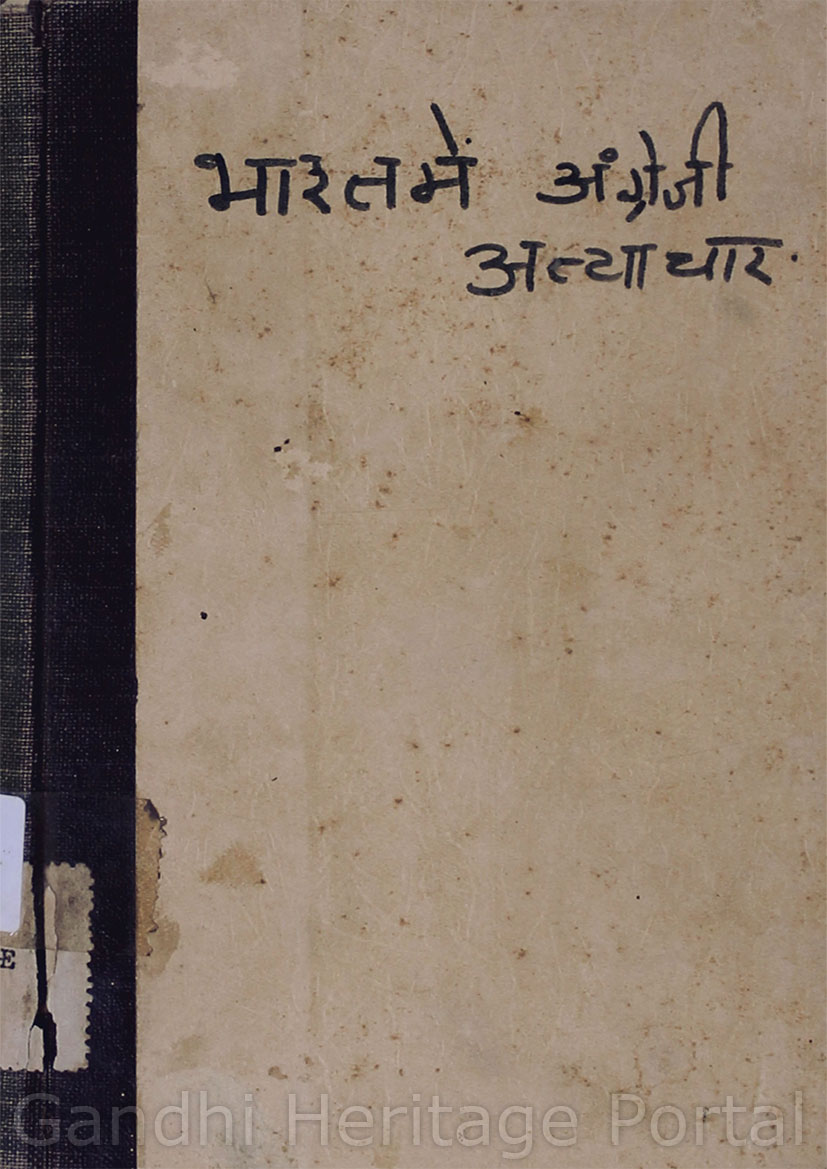 भारतमें अंग्रेजी
अत्याचार.
E
Gandhi Heritage Portal